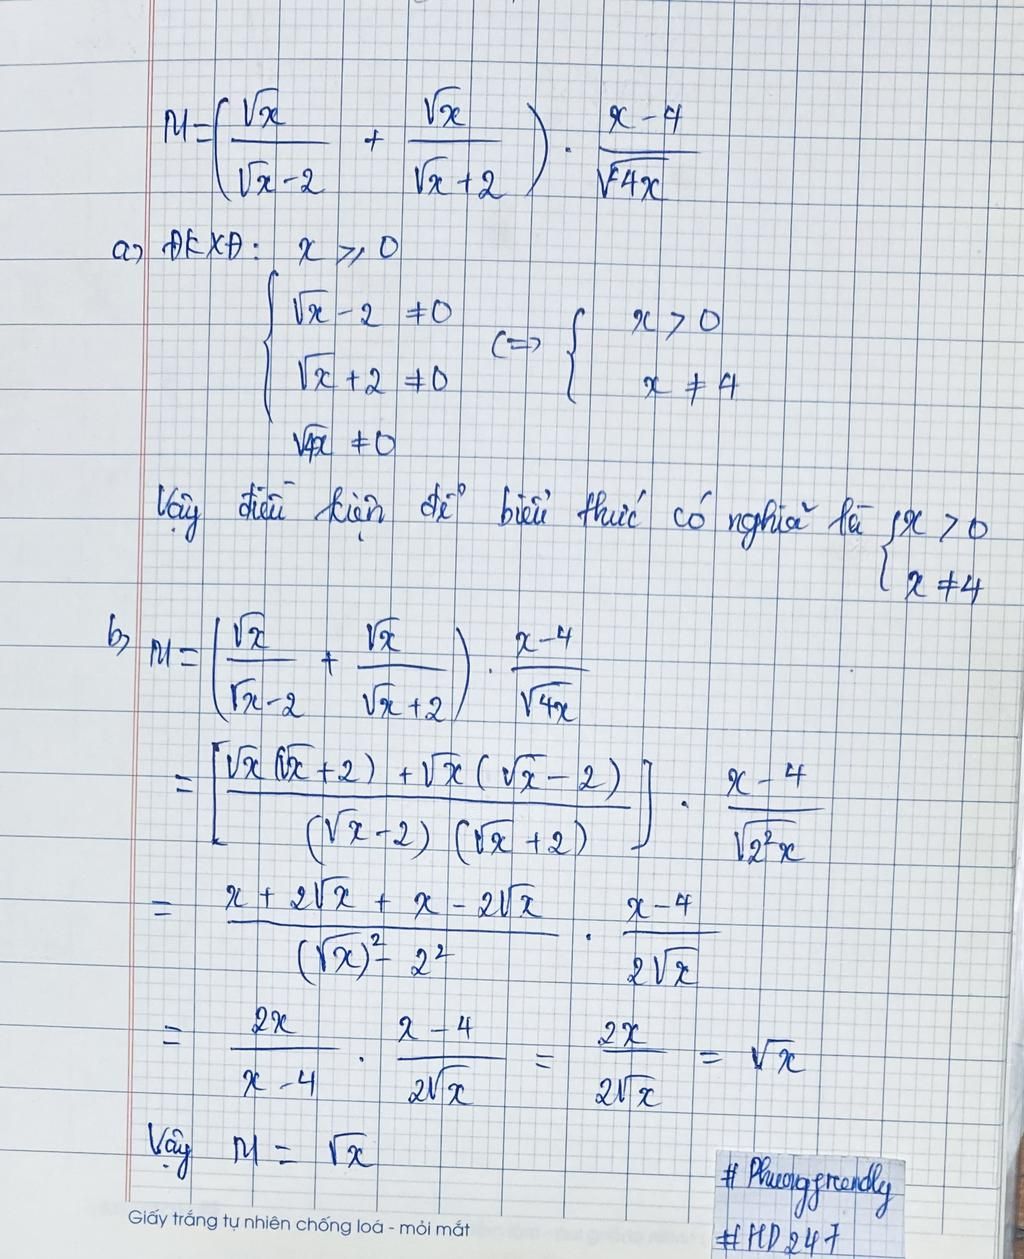 M = (√x/(√x-2) + √x/(√x+2)) · (x-4)/√4x
a) ĐKXĐ: x ⩾ 0
{ √x - 2 ≠ 0
√x + 2 ≠ 0
√4x ≠ 0
<=> { x > 0
x ≠ 4
Vậy điều kiện để biểu thức có nghĩa là { x > 0
x ≠ 4
b) M = (√x/(√x-2) + √x/(√x+2)) · (x-4)/√4x
= [(√x(√x+2) + √x(√x-2))/((√x-2)(√x+2))] · (x-4)/√2²x
= (x + 2√x + x - 2√x)/((√x)² - 2²) · (x-4)/2√x
= 2x/(x-4) · (x-4)/2√x = 2x/2√x = √x
Vậy M = √x
# Phuonggreendly
# HD247
Giấy trắng tự nhiên chống loá - mỏi mắt